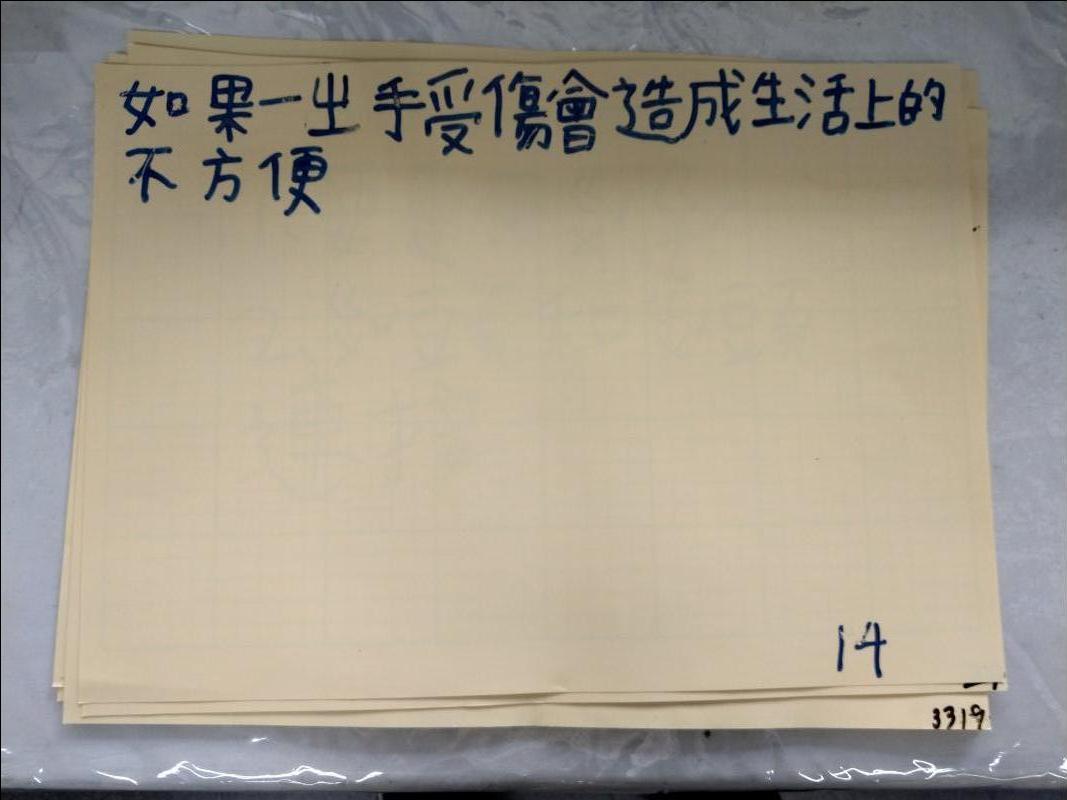 如果一出手受傷會造成生活上的
不方便
14
3319